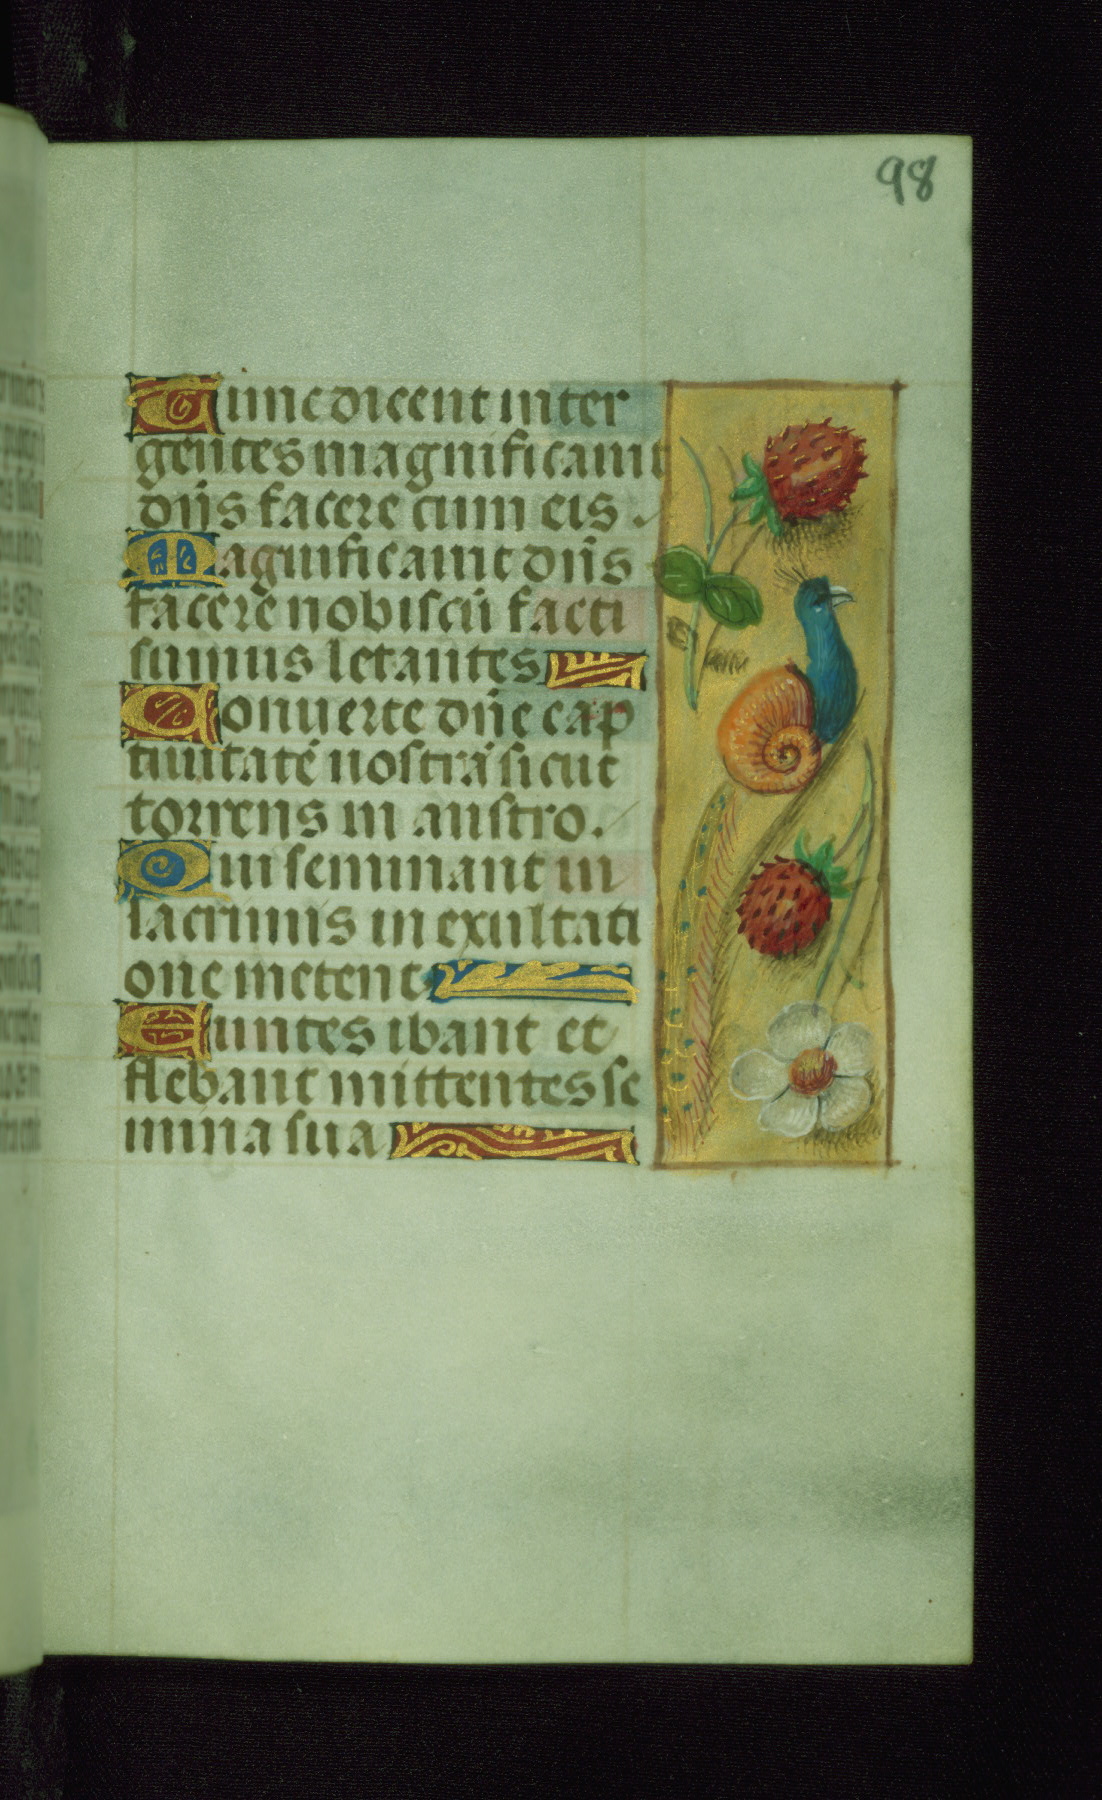 98
Tunc dicent inter
gentes magnificauit
dn̄s facere cum eis.
Magnificauit dn̄s
facere nobiscū facti
sumus letantes
Conuerte dn̄e cap
tiuitatē nostrā sicut
torrens in austro.
Qui seminant in
lacrimis in exultati
one metent
Euntes ibant et
flebant mittentes se
mina sua